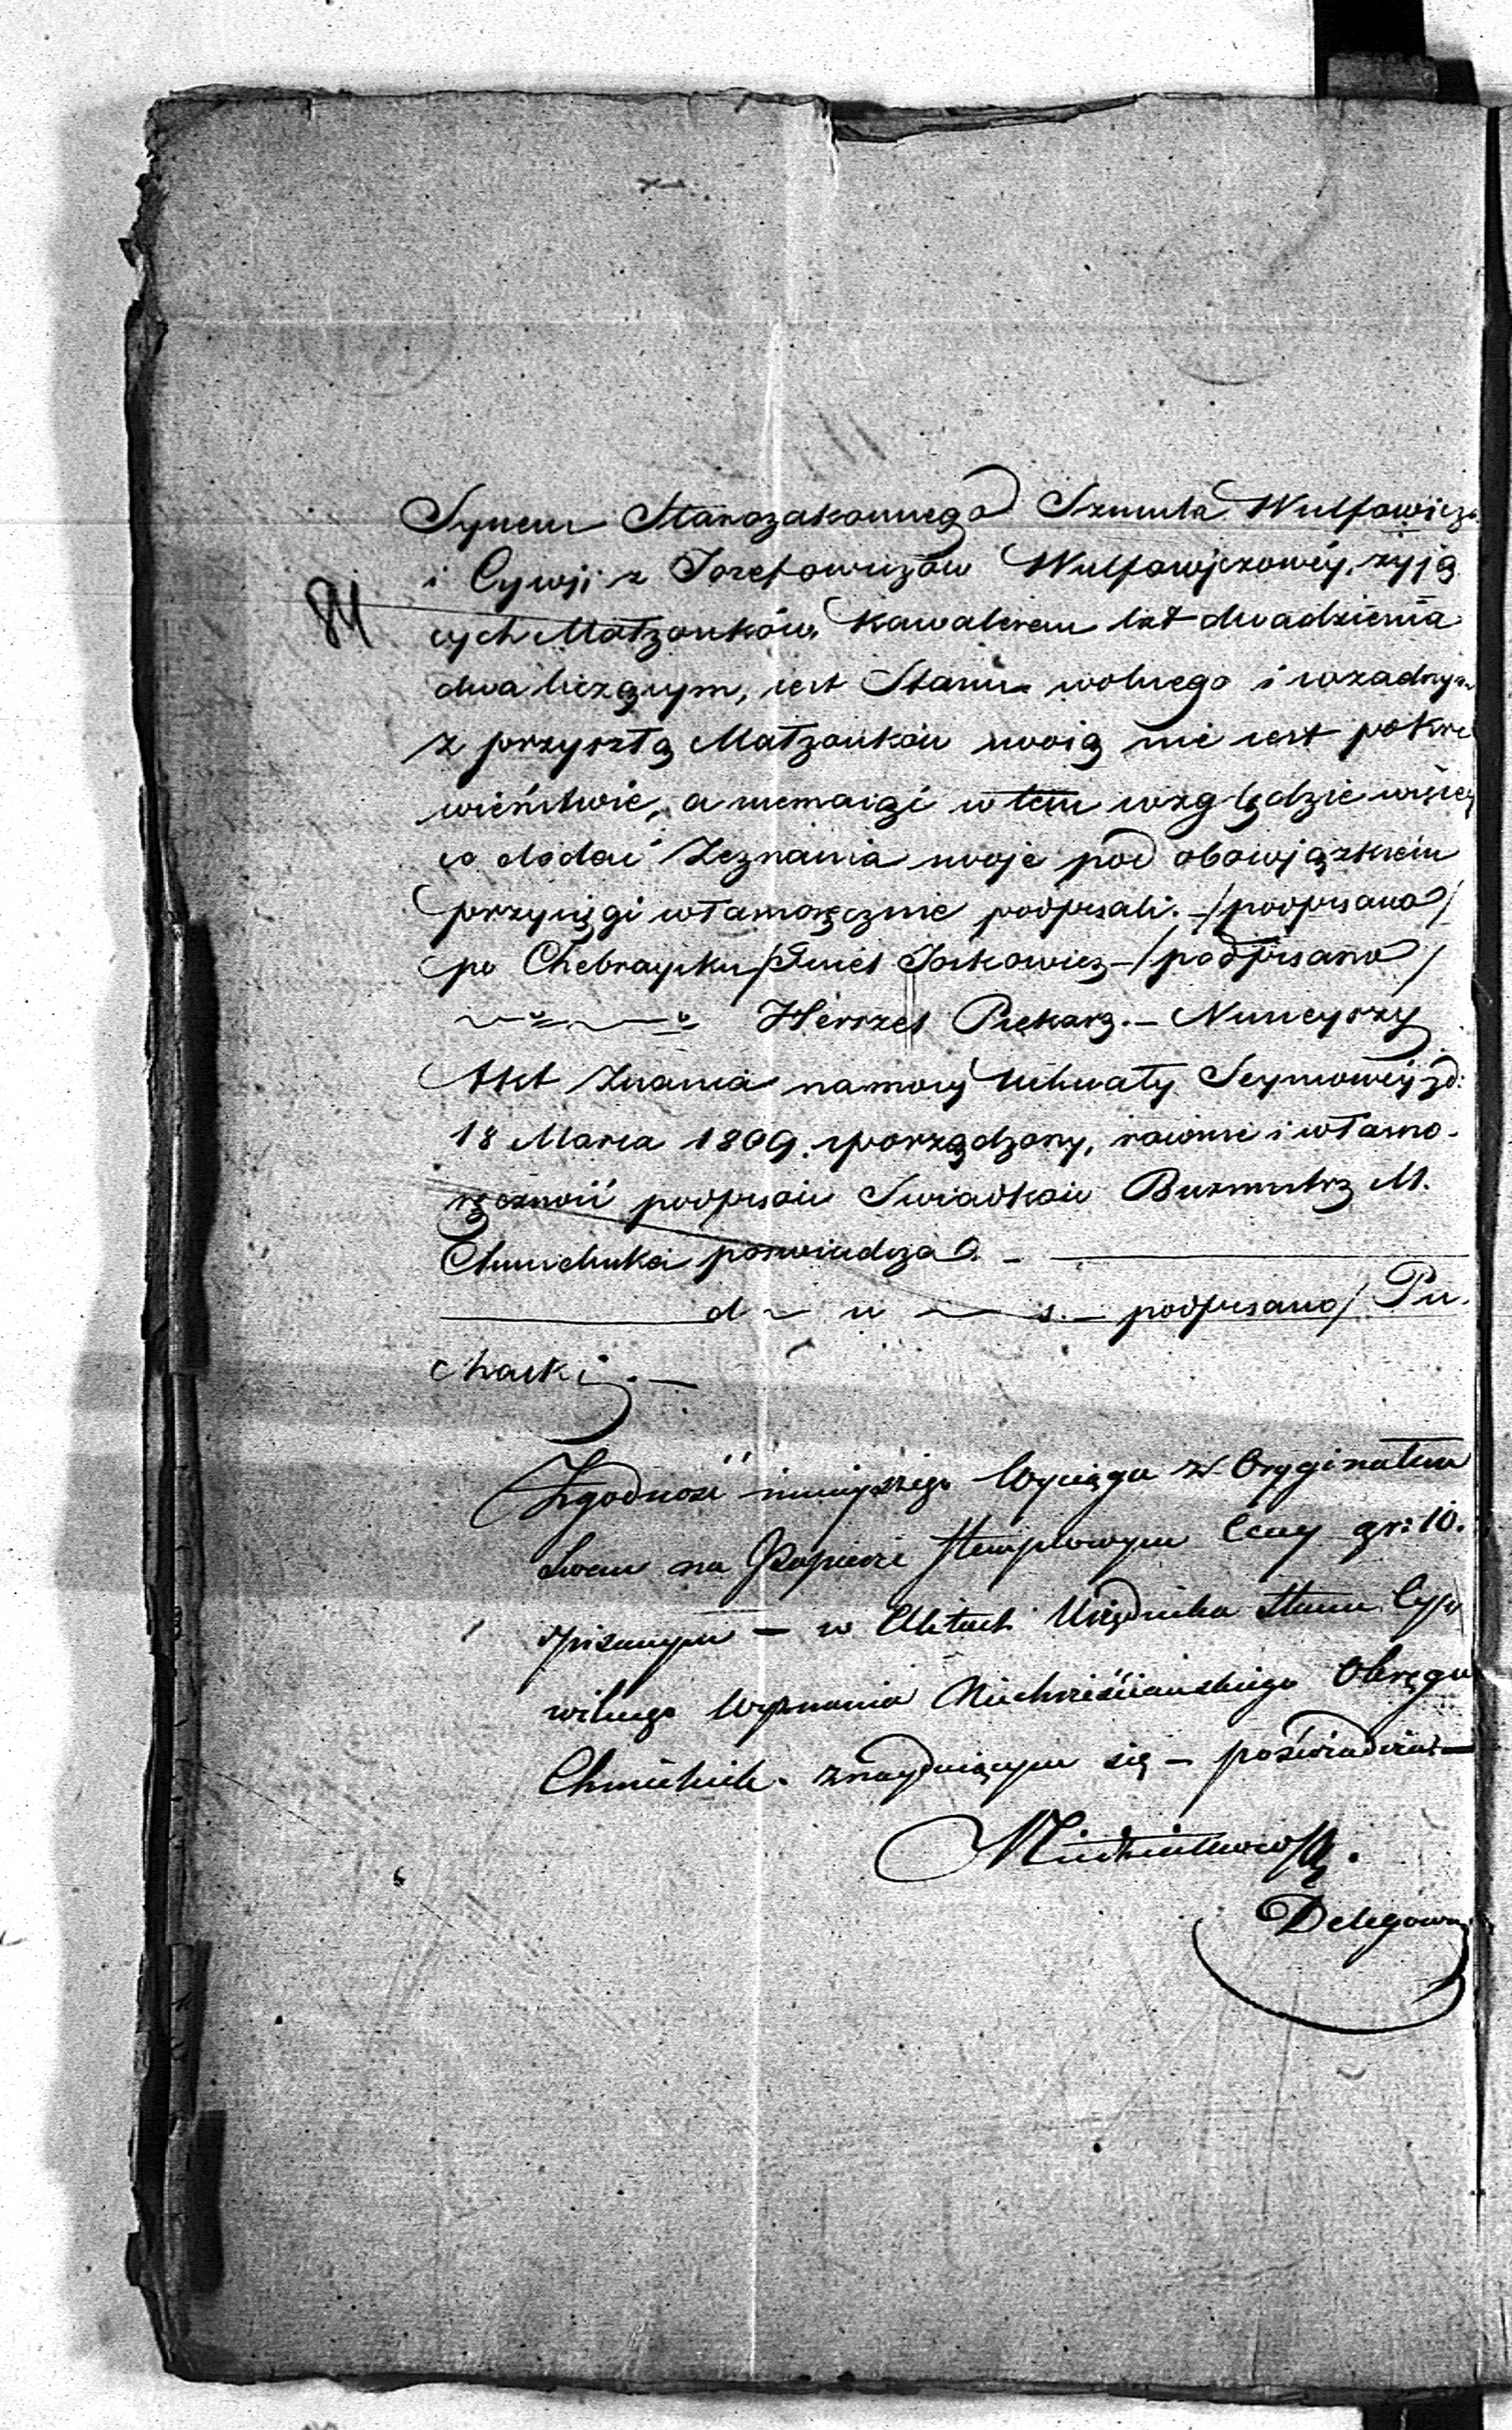 Synem Starozakonnego Szmula Wulfowicza
i Cywji z Josefowiczów Wulfowiczowéy, żyją
84
cych Małżonków, Kawalerem lat dwadzieścia
dwa liczącym, iest Stanu wolnego i wżadnym
z przyszłą Małżonków swoią nie iest pokre
wieństwie, a niemaiąc w tem względzie więcey
co dodać Zeznania swoje pod obowiązkiem
przysięgi własnoręcznie podpisali. – /podpisano/
po Chebraysku/ Joskowicz – /podpisano/
Herszel Piekarz. – Ninieyszy
Akt Znania na mocy Uchwały Seymowéy zd:
18 Marca 1809. sporządzony, równie i własno-
ręczność podpisów Swiadków Burmistrz M.
Chmielnika poświadcza. –
d u s. – podpisano/ Pu
chalski. –
Zgodność ninieyszego Wyciągu z Oryginałem
Swem na Papierze stemplowym Ceny gr: 10.
spisanym – w Aktach Urzędnika Stanu Cy
wilnego Wyznania Niechrześciańskiego Okręgu
znayduiącym się – poświadcza –
Delegowany